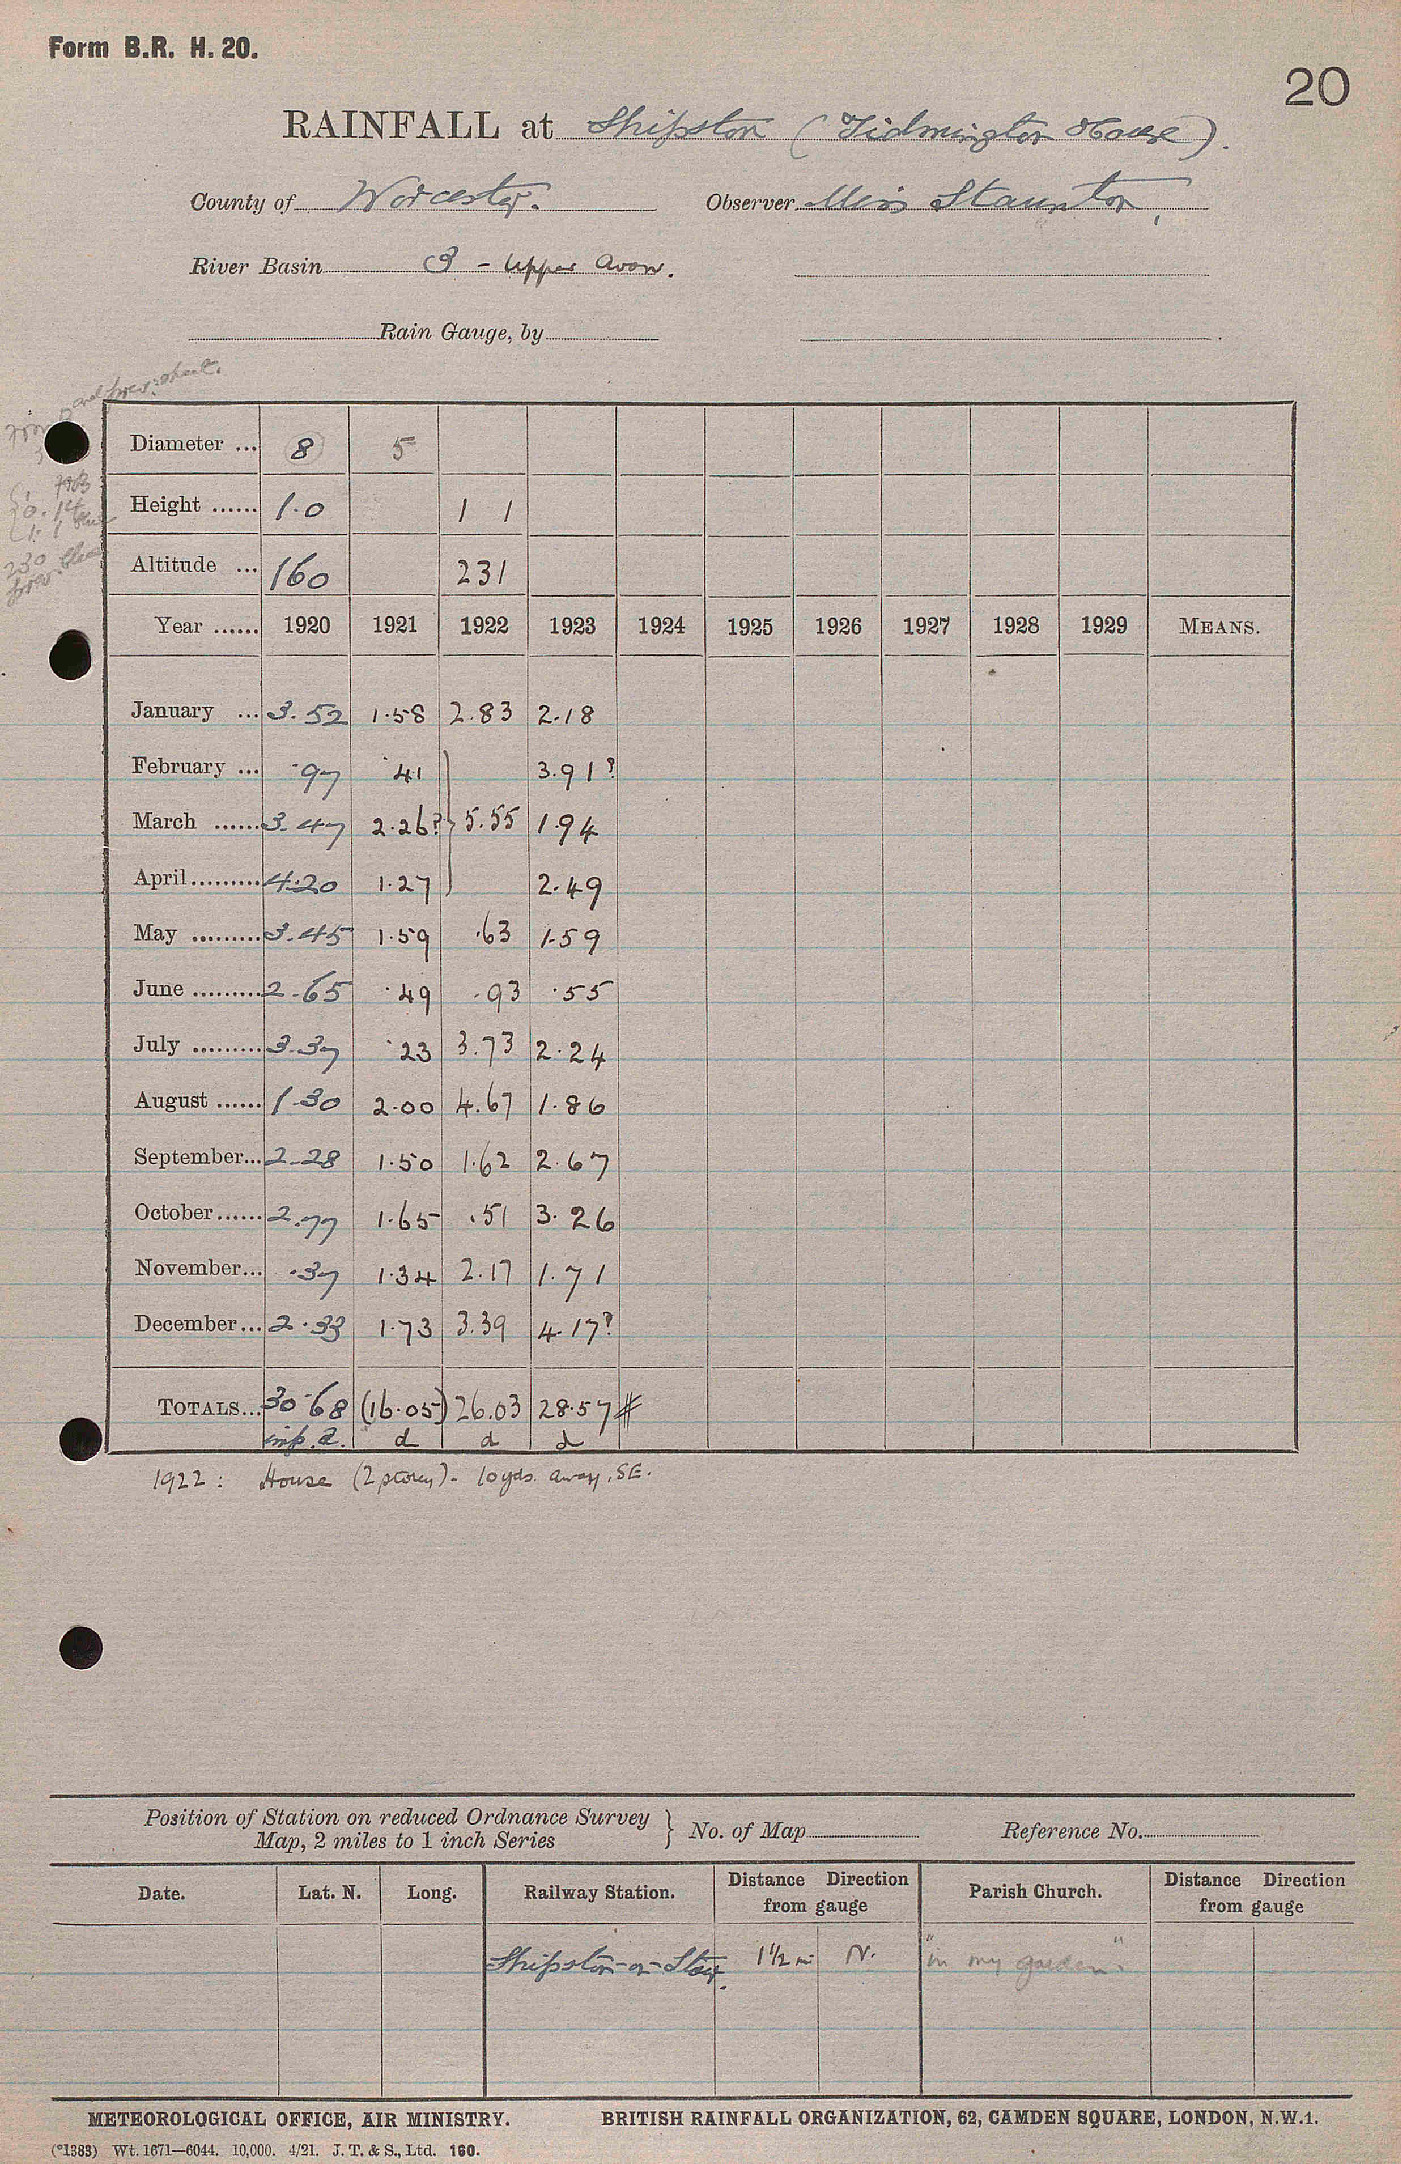 Form B.R. H. 20.
20
RAINFALL at Shipston (Tidmington House).
County of Worcester. Observer Miss Staunton,
River Basin 3 - Upper Avon.
Rain Gauge, by
Diameter ... 8 5
Height ...... 1.0 1 1
Altitude ... 160 231
Year ...... 1920 1921 1922 1923 1924 1925 1926 1927 1928 1929 MEANS.
January ... 3.52 1.58 2.83 2.18
February ... .97 .41 3.91?
March ...... 3.47 2.26? } 5.55 1.94
April ......... 4.20 1.27 2.49
May ......... 3.45 1.59 .63 1.59
June ......... 2.65 .49 .93 .55
July ......... 3.37 .23 3.73 2.24
August ...... 1.30 2.00 4.67 1.86
September... 2.28 1.50 1.62 2.67
October ...... 2.77 1.65 .51 3.26
November... .37 1.34 2.17 1.71
December... 2.33 1.73 3.39 4.17?
TOTALS... 30.68 (16.05) 26.03 28.57 #
inf. d. d d d
1922 : House (2 storey) - 10 yds. away, SE.
Position of Station on reduced Ordnance Survey
Map, 2 miles to 1 inch Series } No. of Map Reference No.
Date. Lat. N. Long. Railway Station. Distance Direction from gauge Parish Church. Distance Direction from gauge
Shipston-on-Stour 1½ mi N. "in my garden."
METEOROLOGICAL OFFICE, AIR MINISTRY. BRITISH RAINFALL ORGANIZATION, 62, CAMDEN SQUARE, LONDON, N.W.1.
(*1383) Wt. 1671—6044. 10,000. 4/21. J. T. & S., Ltd. 160.